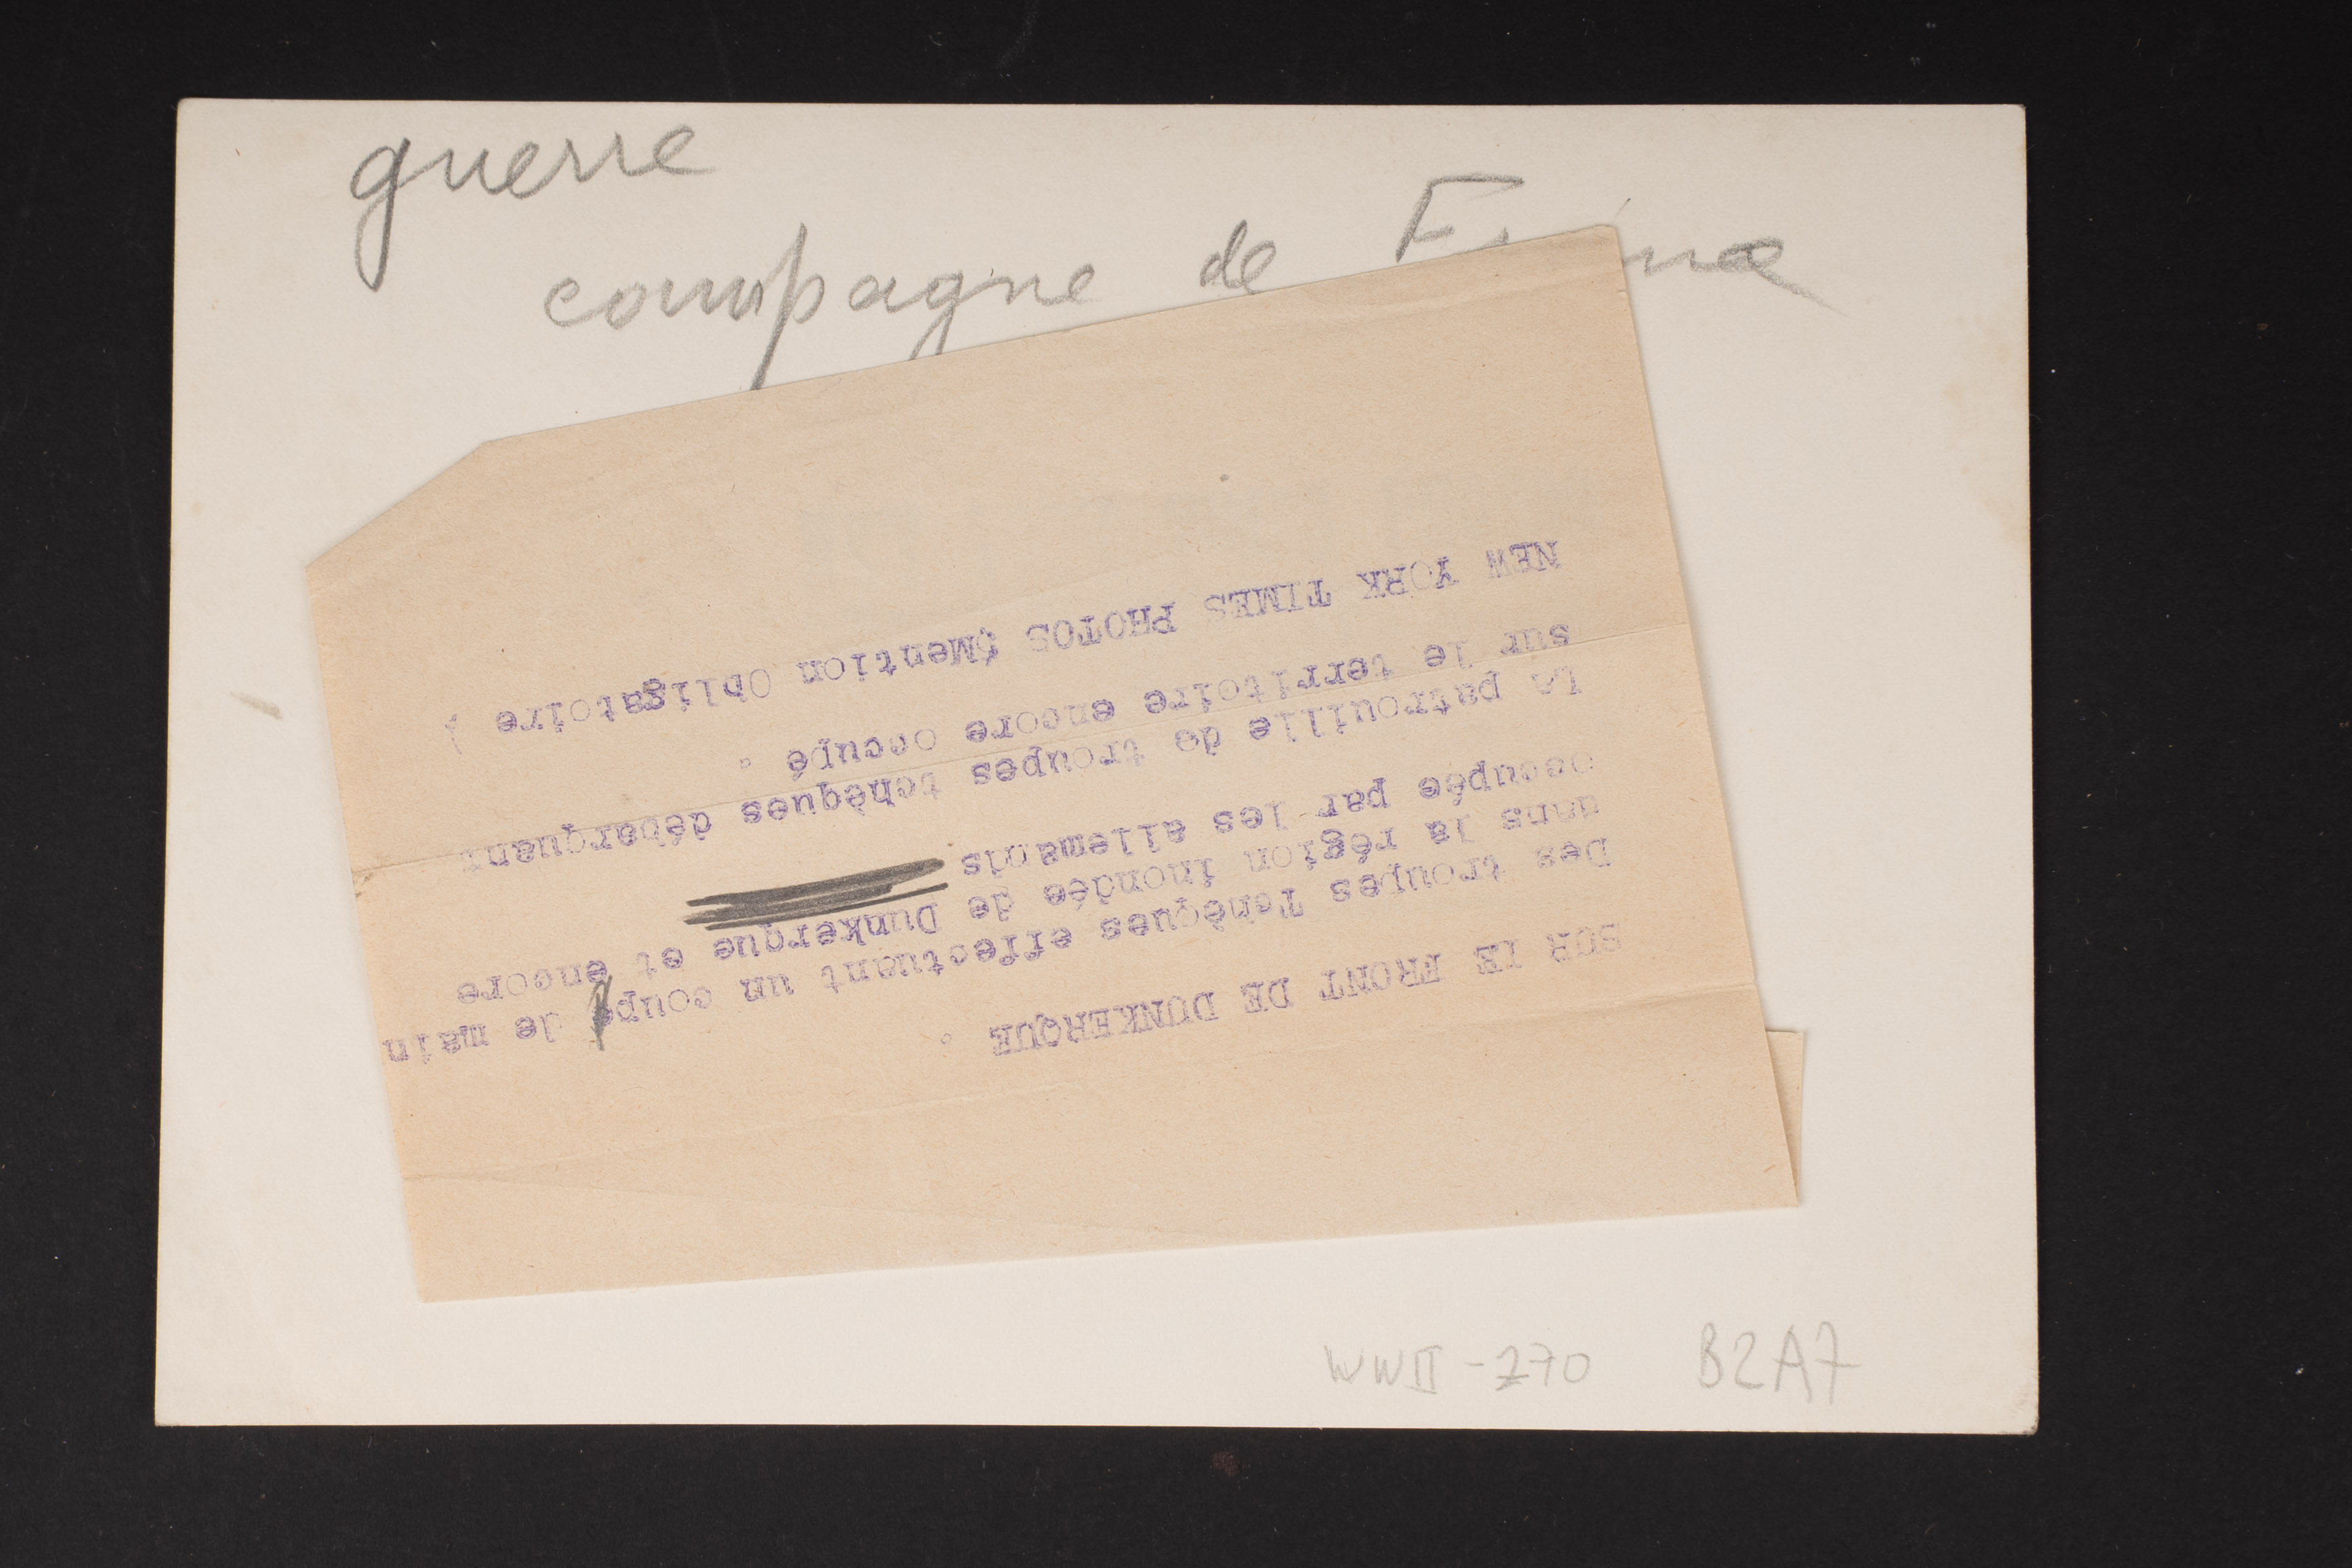 guerre
campagne de France
SUR LE FRONT DE DUNKERQUE .
Des troupes Tchèques effectuant un coup de main
dans la région inondée de Dunkerque et encore
occupée par les allemands
La patrouille de troupes tchèques débarquant
sur le territoire encore occupé .
NEW YORK TIMES PHOTOS (Mention Obligatoire )
WWII - 270 B2A7